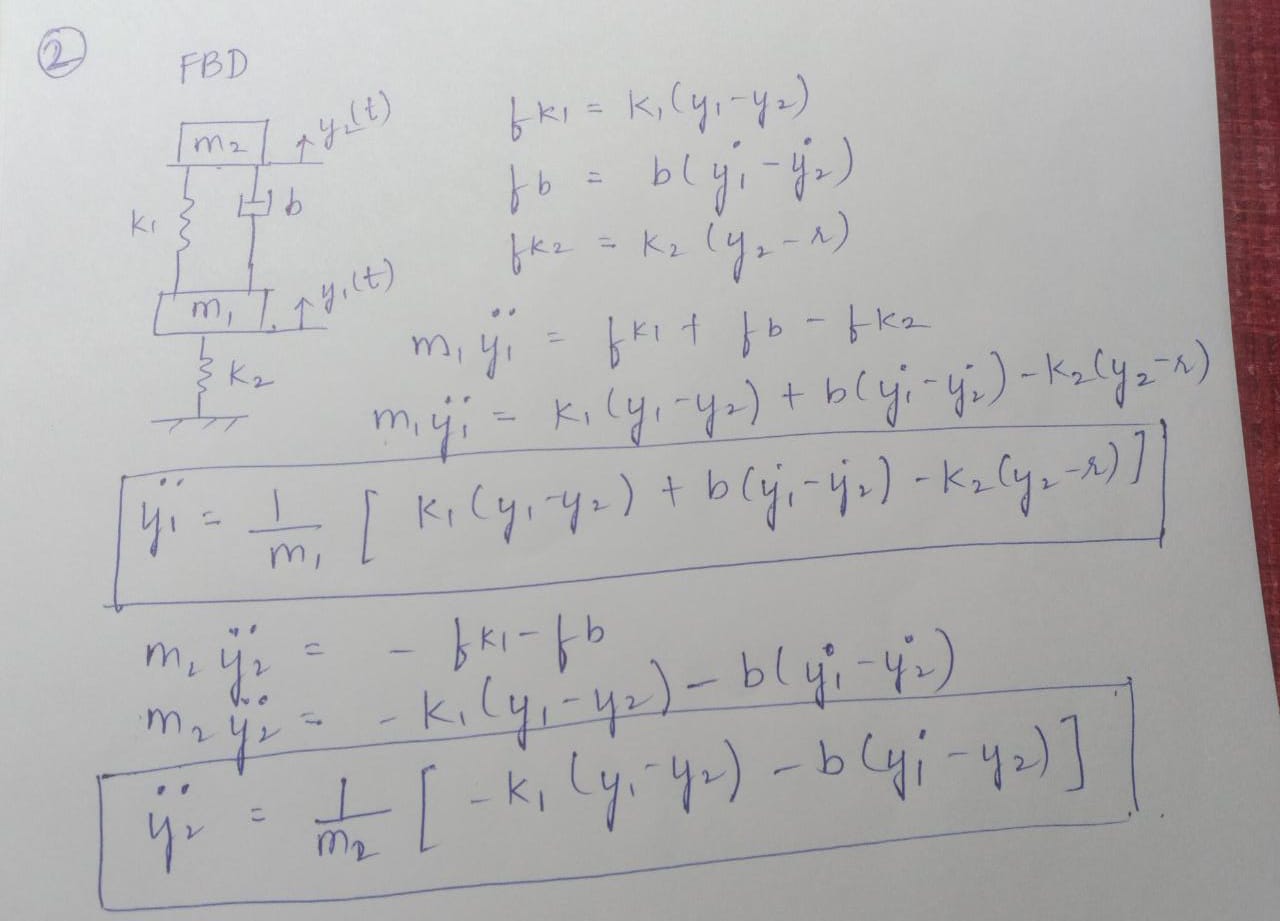 ②
FBD
m₂ ↑y₂(t)
k₁ b
m₁ ↑y₁(t)
k₂
fk₁ = k₁(y₁-y₂)
fb = b(ẏ₁-ẏ₂)
fk₂ = k₂(y₂-r)
m₁ÿ₁ = fk₁ + fb - fk₂
m₁ÿ₁ = k₁(y₁-y₂) + b(ẏ₁-ẏ₂) - k₂(y₂-r)
ÿ₁ = 1/m₁ [ k₁(y₁-y₂) + b(ẏ₁-ẏ₂) - k₂(y₂-r)]
m₂ÿ₂ = - fk₁ - fb
m₂ÿ₂ = - k₁(y₁-y₂) - b(ẏ₁-ẏ₂)
ÿ₂ = 1/m₂ [ -k₁(y₁-y₂) - b(ẏ₁-y₂)]